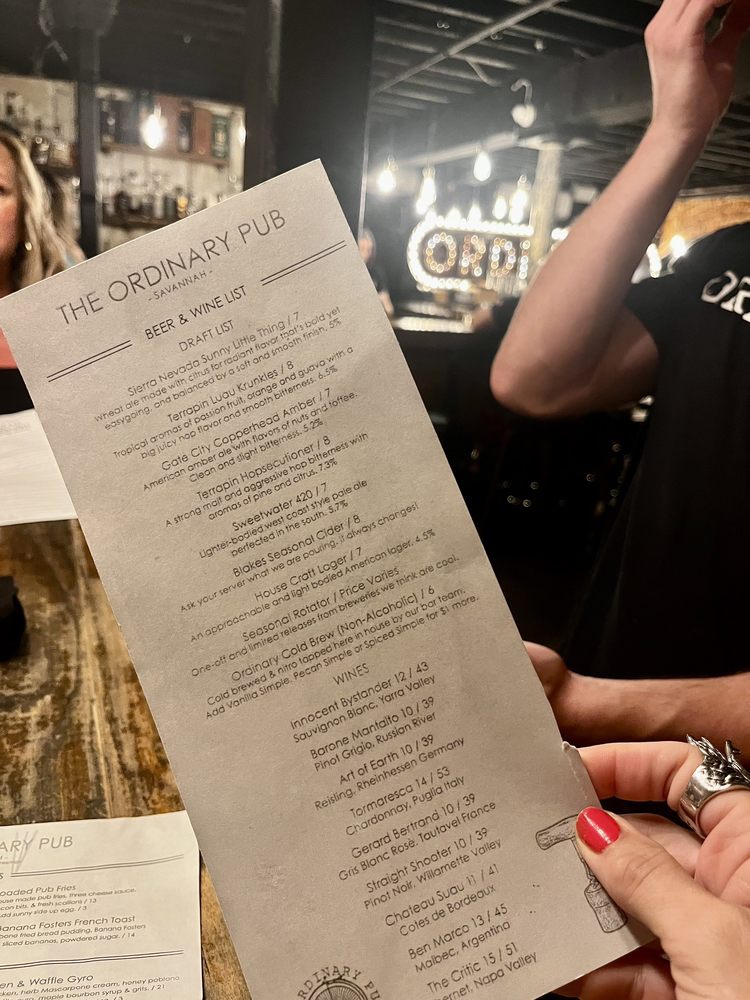 THE ORDINARY PUB
- SAVANNAH -
BEER & WINE LIST
DRAFT LIST
Sierra Nevada Sunny Little Thing / 7
Wheat ale made with citrus for radiant flavor that's bold yet
easygoing, and balanced by a soft and smooth finish. 5%
Terrapin Luau Krunkles / 8
Tropical aromas of passion fruit, orange and guava with a
big juicy hop flavor and smooth bitterness. 6.5%
Gate City Copperhead Amber / 7
American amber ale with flavors of nuts and toffee.
Clean and slight bitterness. 5.2%
Terrapin Hopsecutioner / 8
A strong malt and aggressive hop bitterness with
aromas of pine and citrus. 7.3%
Sweetwater 420 / 7
Lighter-bodied west coast style pale ale
perfected in the south. 5.7%
Blakes Seasonal Cider / 8
Ask your server what we are pouring, it always changes!
House Craft Lager / 7
An approachable and light bodied American lager. 4.5%
Seasonal Rotator / Price Varies
One-off and limited releases from breweries we think are cool.
Ordinary Cold Brew (Non-Alcoholic) / 6
Cold brewed & nitro tapped here in house by our bar team.
Add Vanilla Simple, Pecan Simple or Spiced Simple for $1 more.
WINES
Innocent Bystander 12 / 43
Sauvignon Blanc, Yarra Valley
Barone Mantalto 10 / 39
Pinot Grigio, Russian River
Art of Earth 10 / 39
Reisling, Rheinhessen Germany
Tormaresca 14 / 53
Chardonnay, Puglia Italy
Gerard Bertrand 10 / 39
Gris Blanc Rosé, Tautavel France
Straight Shooter 10 / 39
Pinot Noir, Willamette Valley
Chateau Suau 11 / 41
Cotes de Bordeaux
Ben Marco 13 / 45
Malbec, Argentina
The Critic 15 / 51
bernet, Napa Valley
ORDINARY PU
ORDI
OR
ARY PUB
oaded Pub Fries
use made pub fries, three cheese sauce,
con bits, & fresh scallions / 13
dd sunny side up egg. / 3
Banana Fosters French Toast
bone fried bread pudding, Banana Fosters
sliced bananas, powdered sugar. / 14
en & Waffle Gyro
cken, herb Mascarpone cream, honey poblano
maple bourbon syrup & grits. / 21